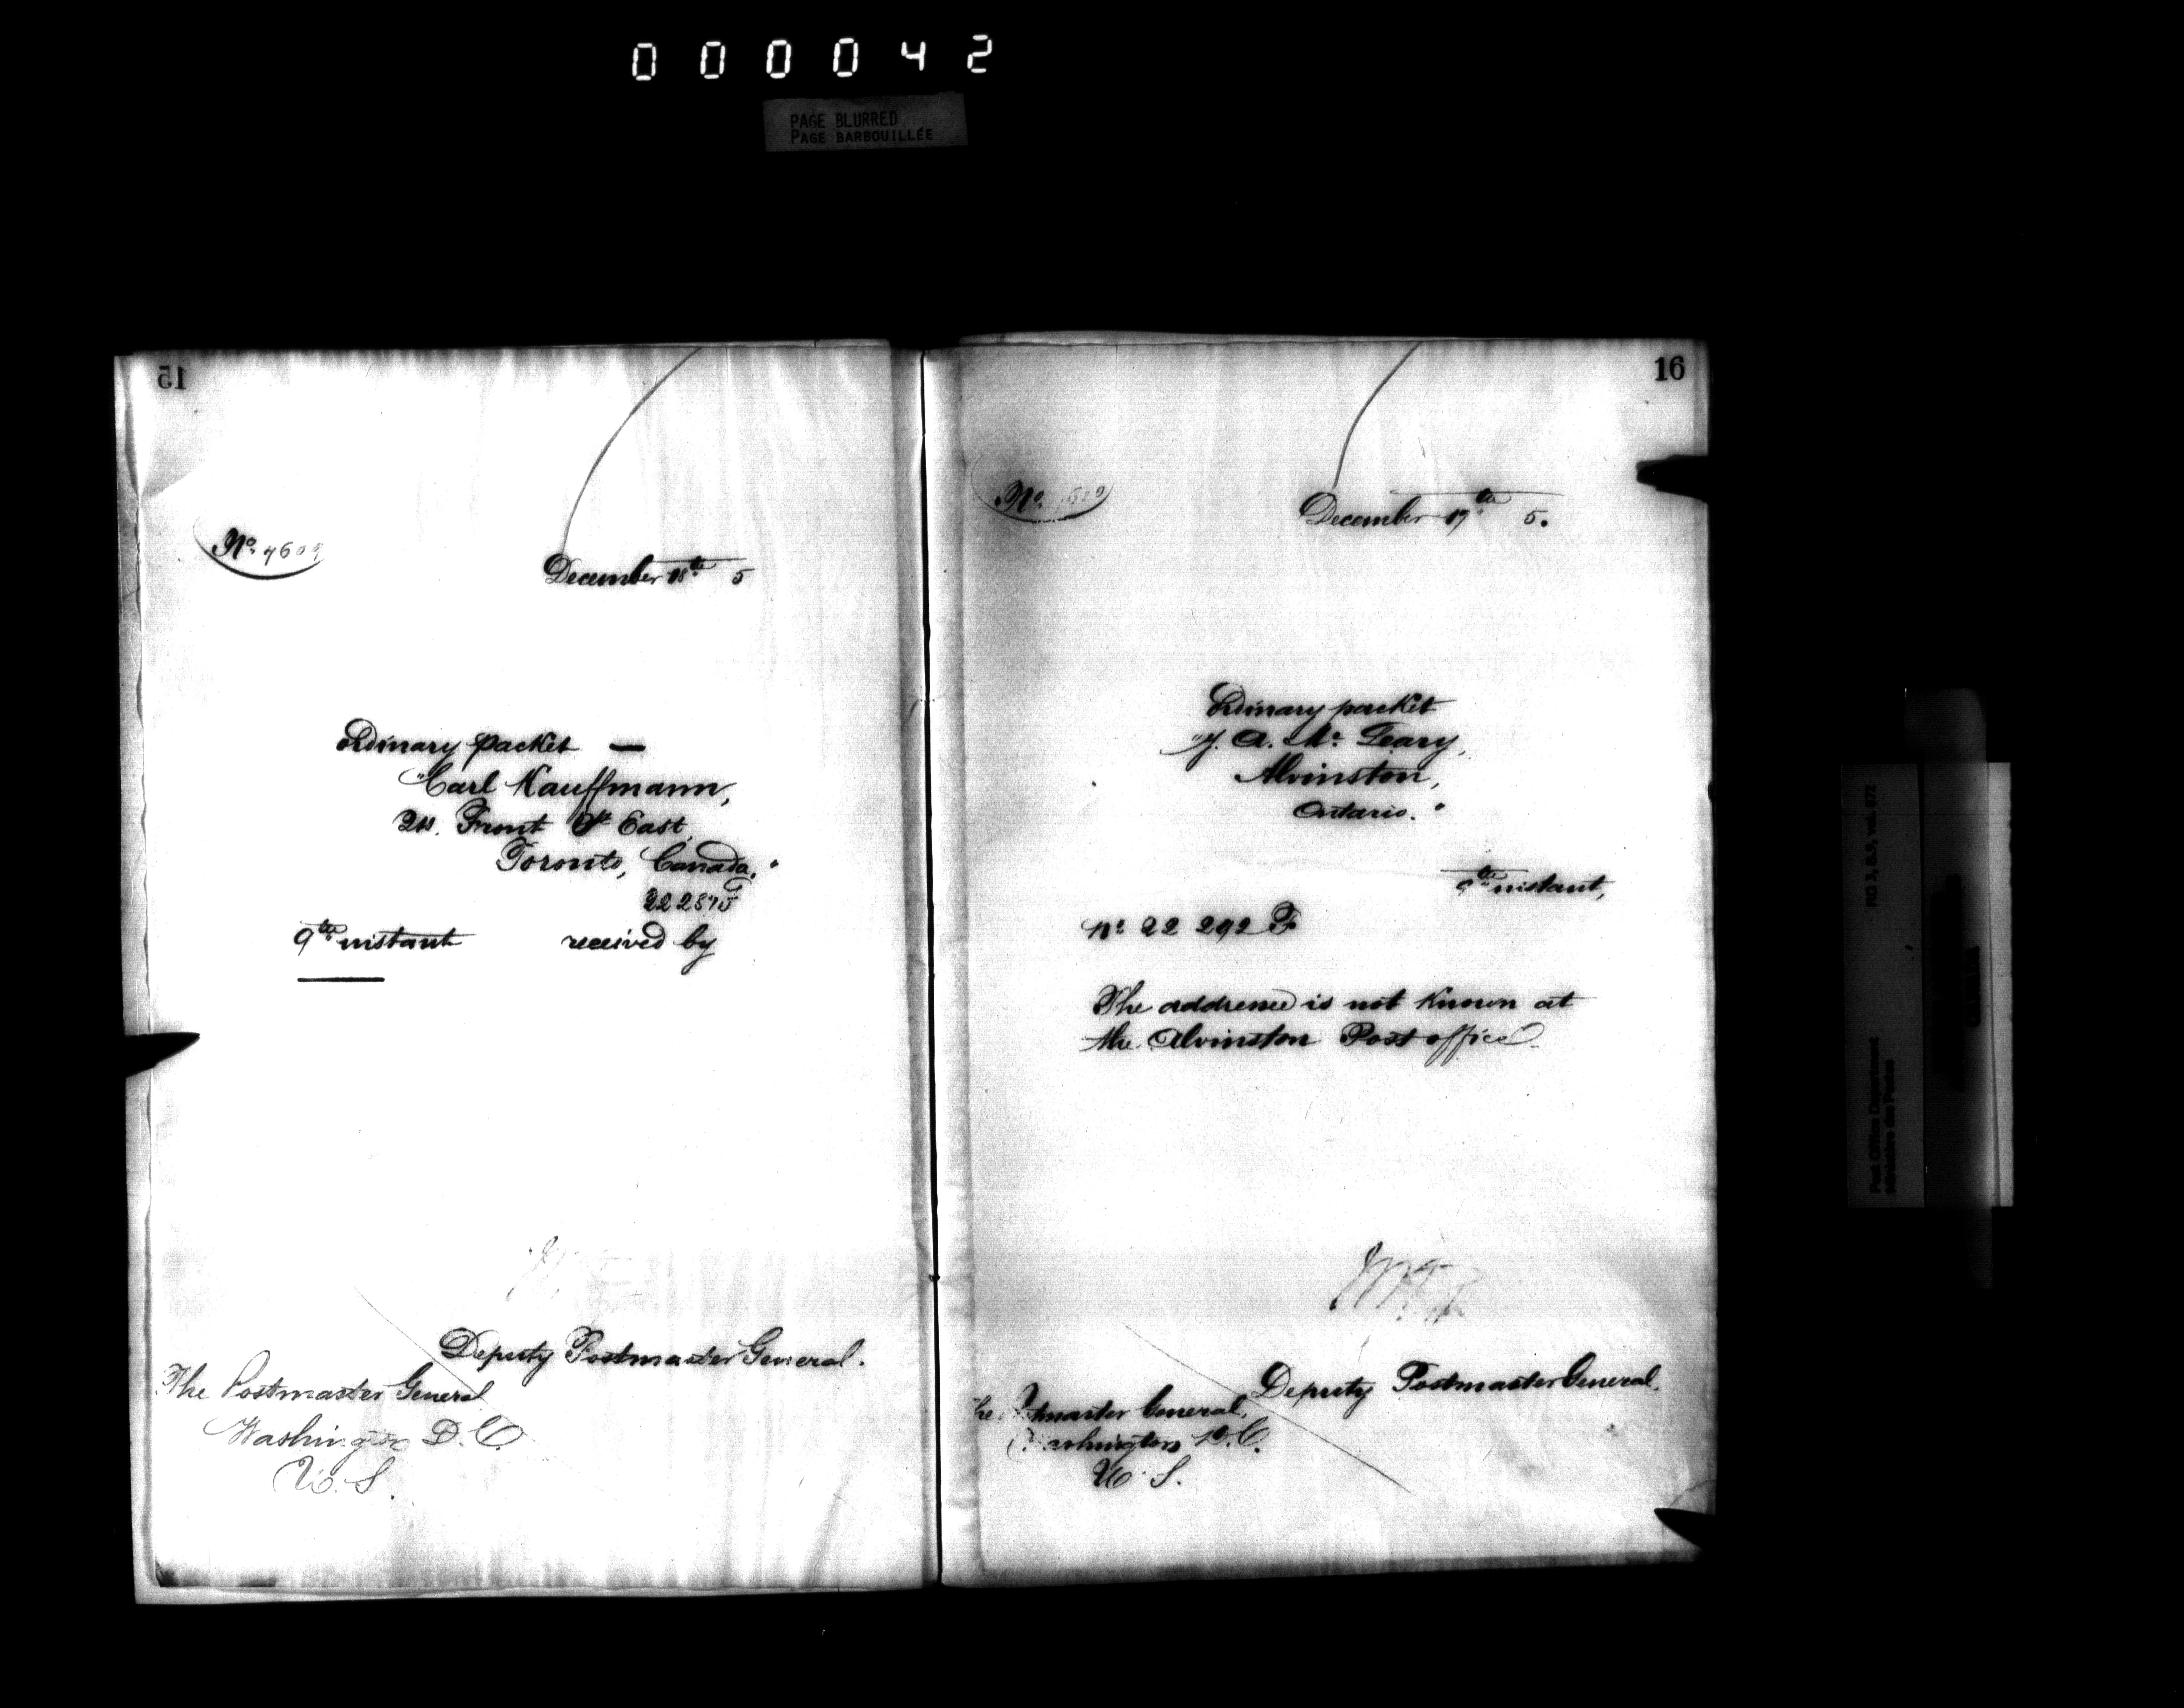 000042
PAGE BLURRED
PAGE BARBOUILLÉE
15
No. 4609
December 18th 5
Ordinary packet —
"Carl Kauffmann,
Front St East,
Toronto, Canada."
9th instant received by
Deputy Postmaster General.
The Postmaster General
Washington D.C.
U.S.
16
No.
December 19th 5.
Ordinary packet
"J. A. Mc Leary,
Alvinston,
Ontario."
9th instant,
No 22 292 F
The addressee is not known at
the Alvinston Post office.
Deputy Postmaster General.
Postmaster General,
Washington D.C.
U.S.
RG 3, D.3, vol. 872
Post Office Department
Ministère des Postes